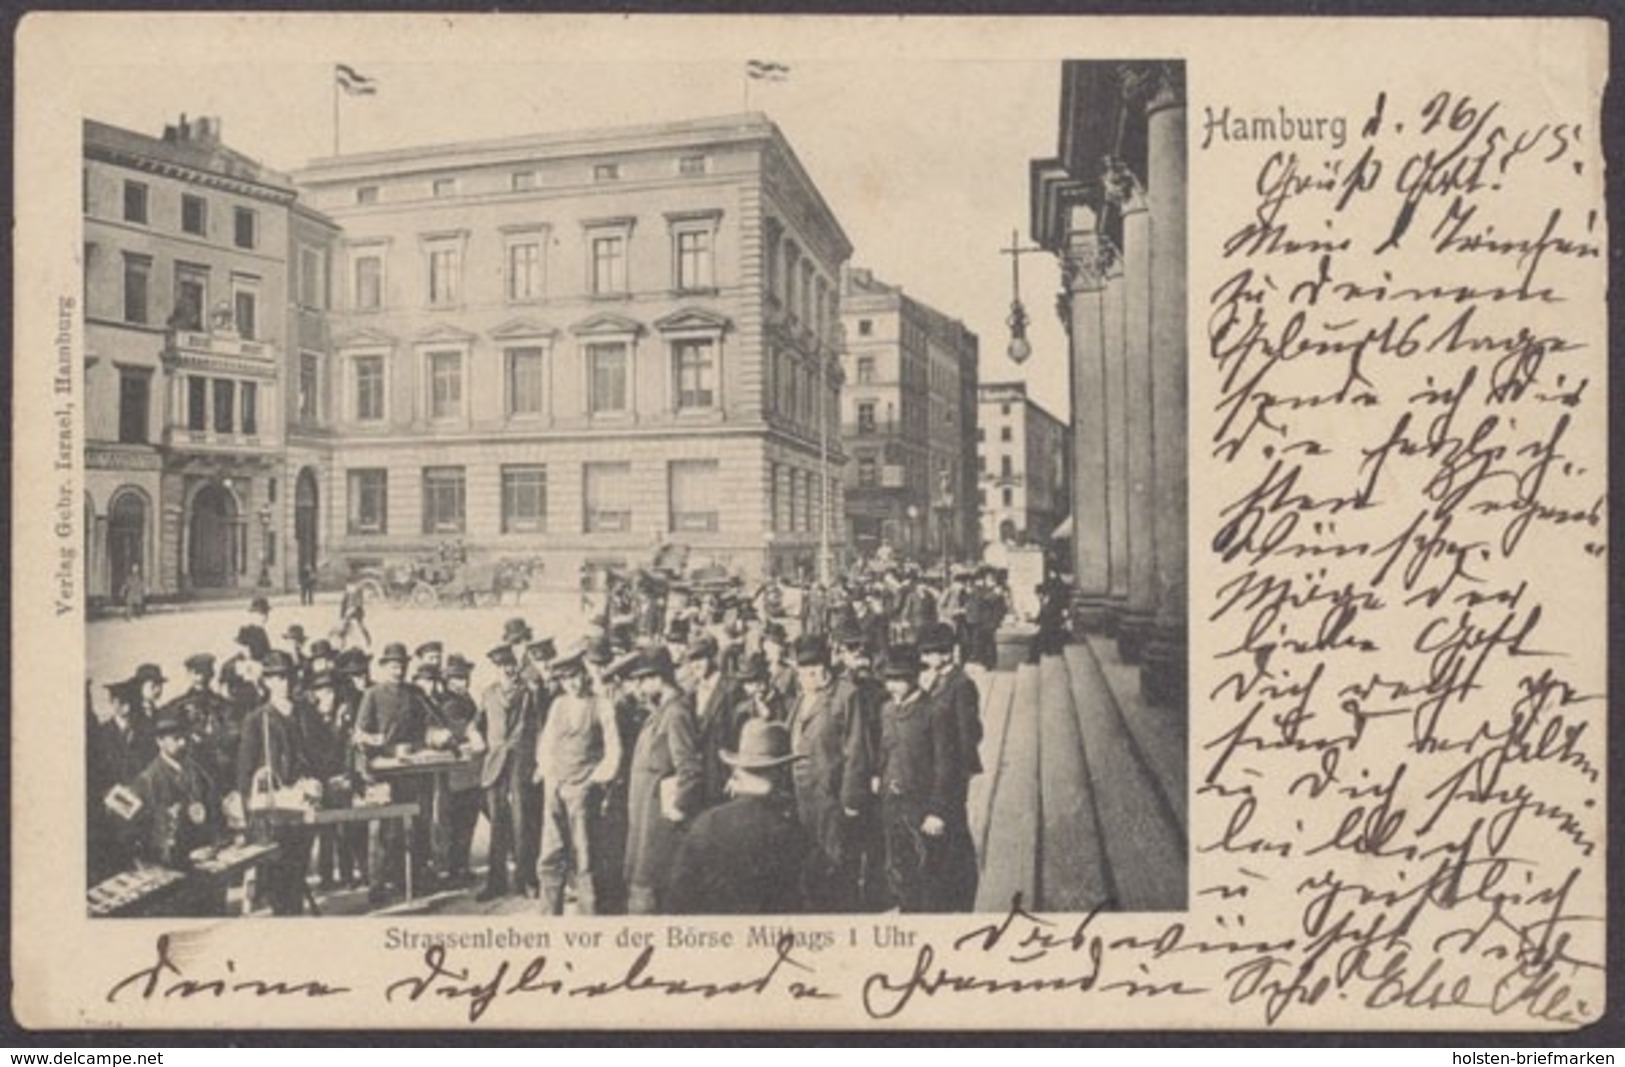 Hamburg d. 26/5 05.
Grüß Gott!
Mein
zu Deinem
Geburtstage
sende ich Dir
die herzlich-
sten Segens
Wünsche.
Möge der
liebe Gott
Dich recht ge
sund erhalten
u Dich segnen
leiblich
u geistlich
Das wünscht Dir
Deine Dichliebende Freundin Schw. Else
Strassenleben vor der Börse Mittags 1 Uhr
Verlag Gebr. Israel, Hamburg
www.delcampe.net
holsten-briefmarken